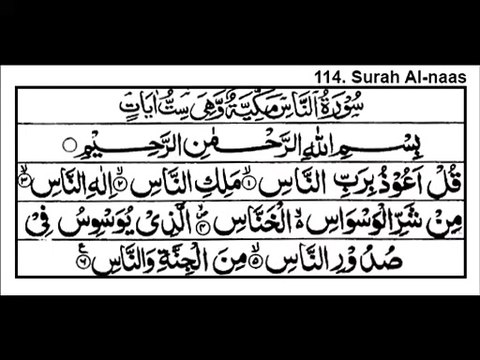 114. Surah Al-naas
سُوْرَةُ النَّاسِ مَكِّيَّةٌ وَّهِىَ سِتُّ اٰيَاتٍ
بِسْمِ اللهِ الرَّحْمٰنِ الرَّحِيْمِ ○
قُلْ اَعُوْذُ بِرَبِّ النَّاسِ ۙ﴿۱﴾ مَلِكِ النَّاسِ ۙ﴿۲﴾ اِلٰهِ النَّاسِ ۙ﴿۳﴾
مِنْ شَرِّ الْوَسْوَاسِ ۵ الْخَنَّاسِ ۪ۙ﴿۴﴾ الَّذِىْ يُوَسْوِسُ فِىْ
صُدُوْرِ النَّاسِ ۙ﴿۵﴾ مِنَ الْجِنَّةِ وَالنَّاسِ ﴿۶﴾ ع